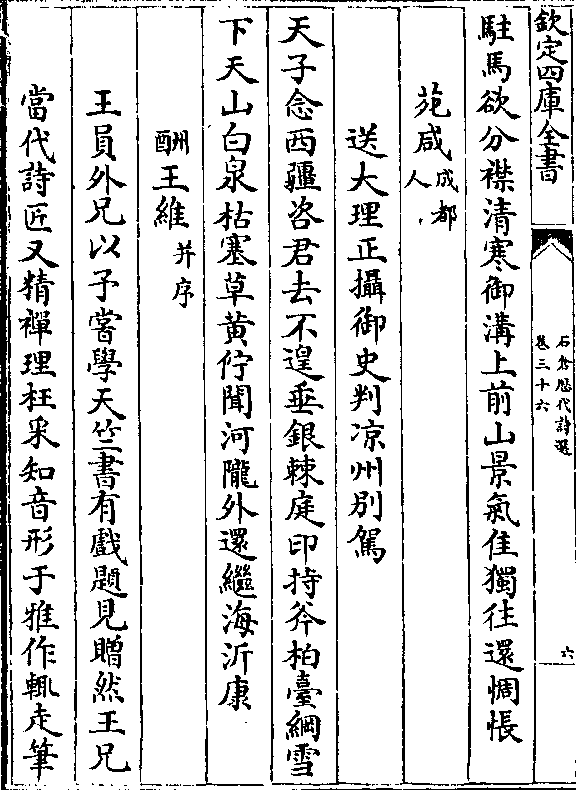 欽定四庫全書
石倉歴代詩選
卷三十六
六
駐馬欲分襟清寒御溝上前山景氣佳獨往還惆悵
苑咸成都人
送大理正攝御史判涼州別駕
天子念西疆咨君去不遑垂銀棘庭印持斧柏臺綱雪
下天山白泉枯塞草黄佇聞河隴外還繼海沂康
酬王維并序
王員外兄以予嘗學天竺書有戲題見贈然王兄
當代詩匠又精禪理枉采知音形于雅作輒走筆